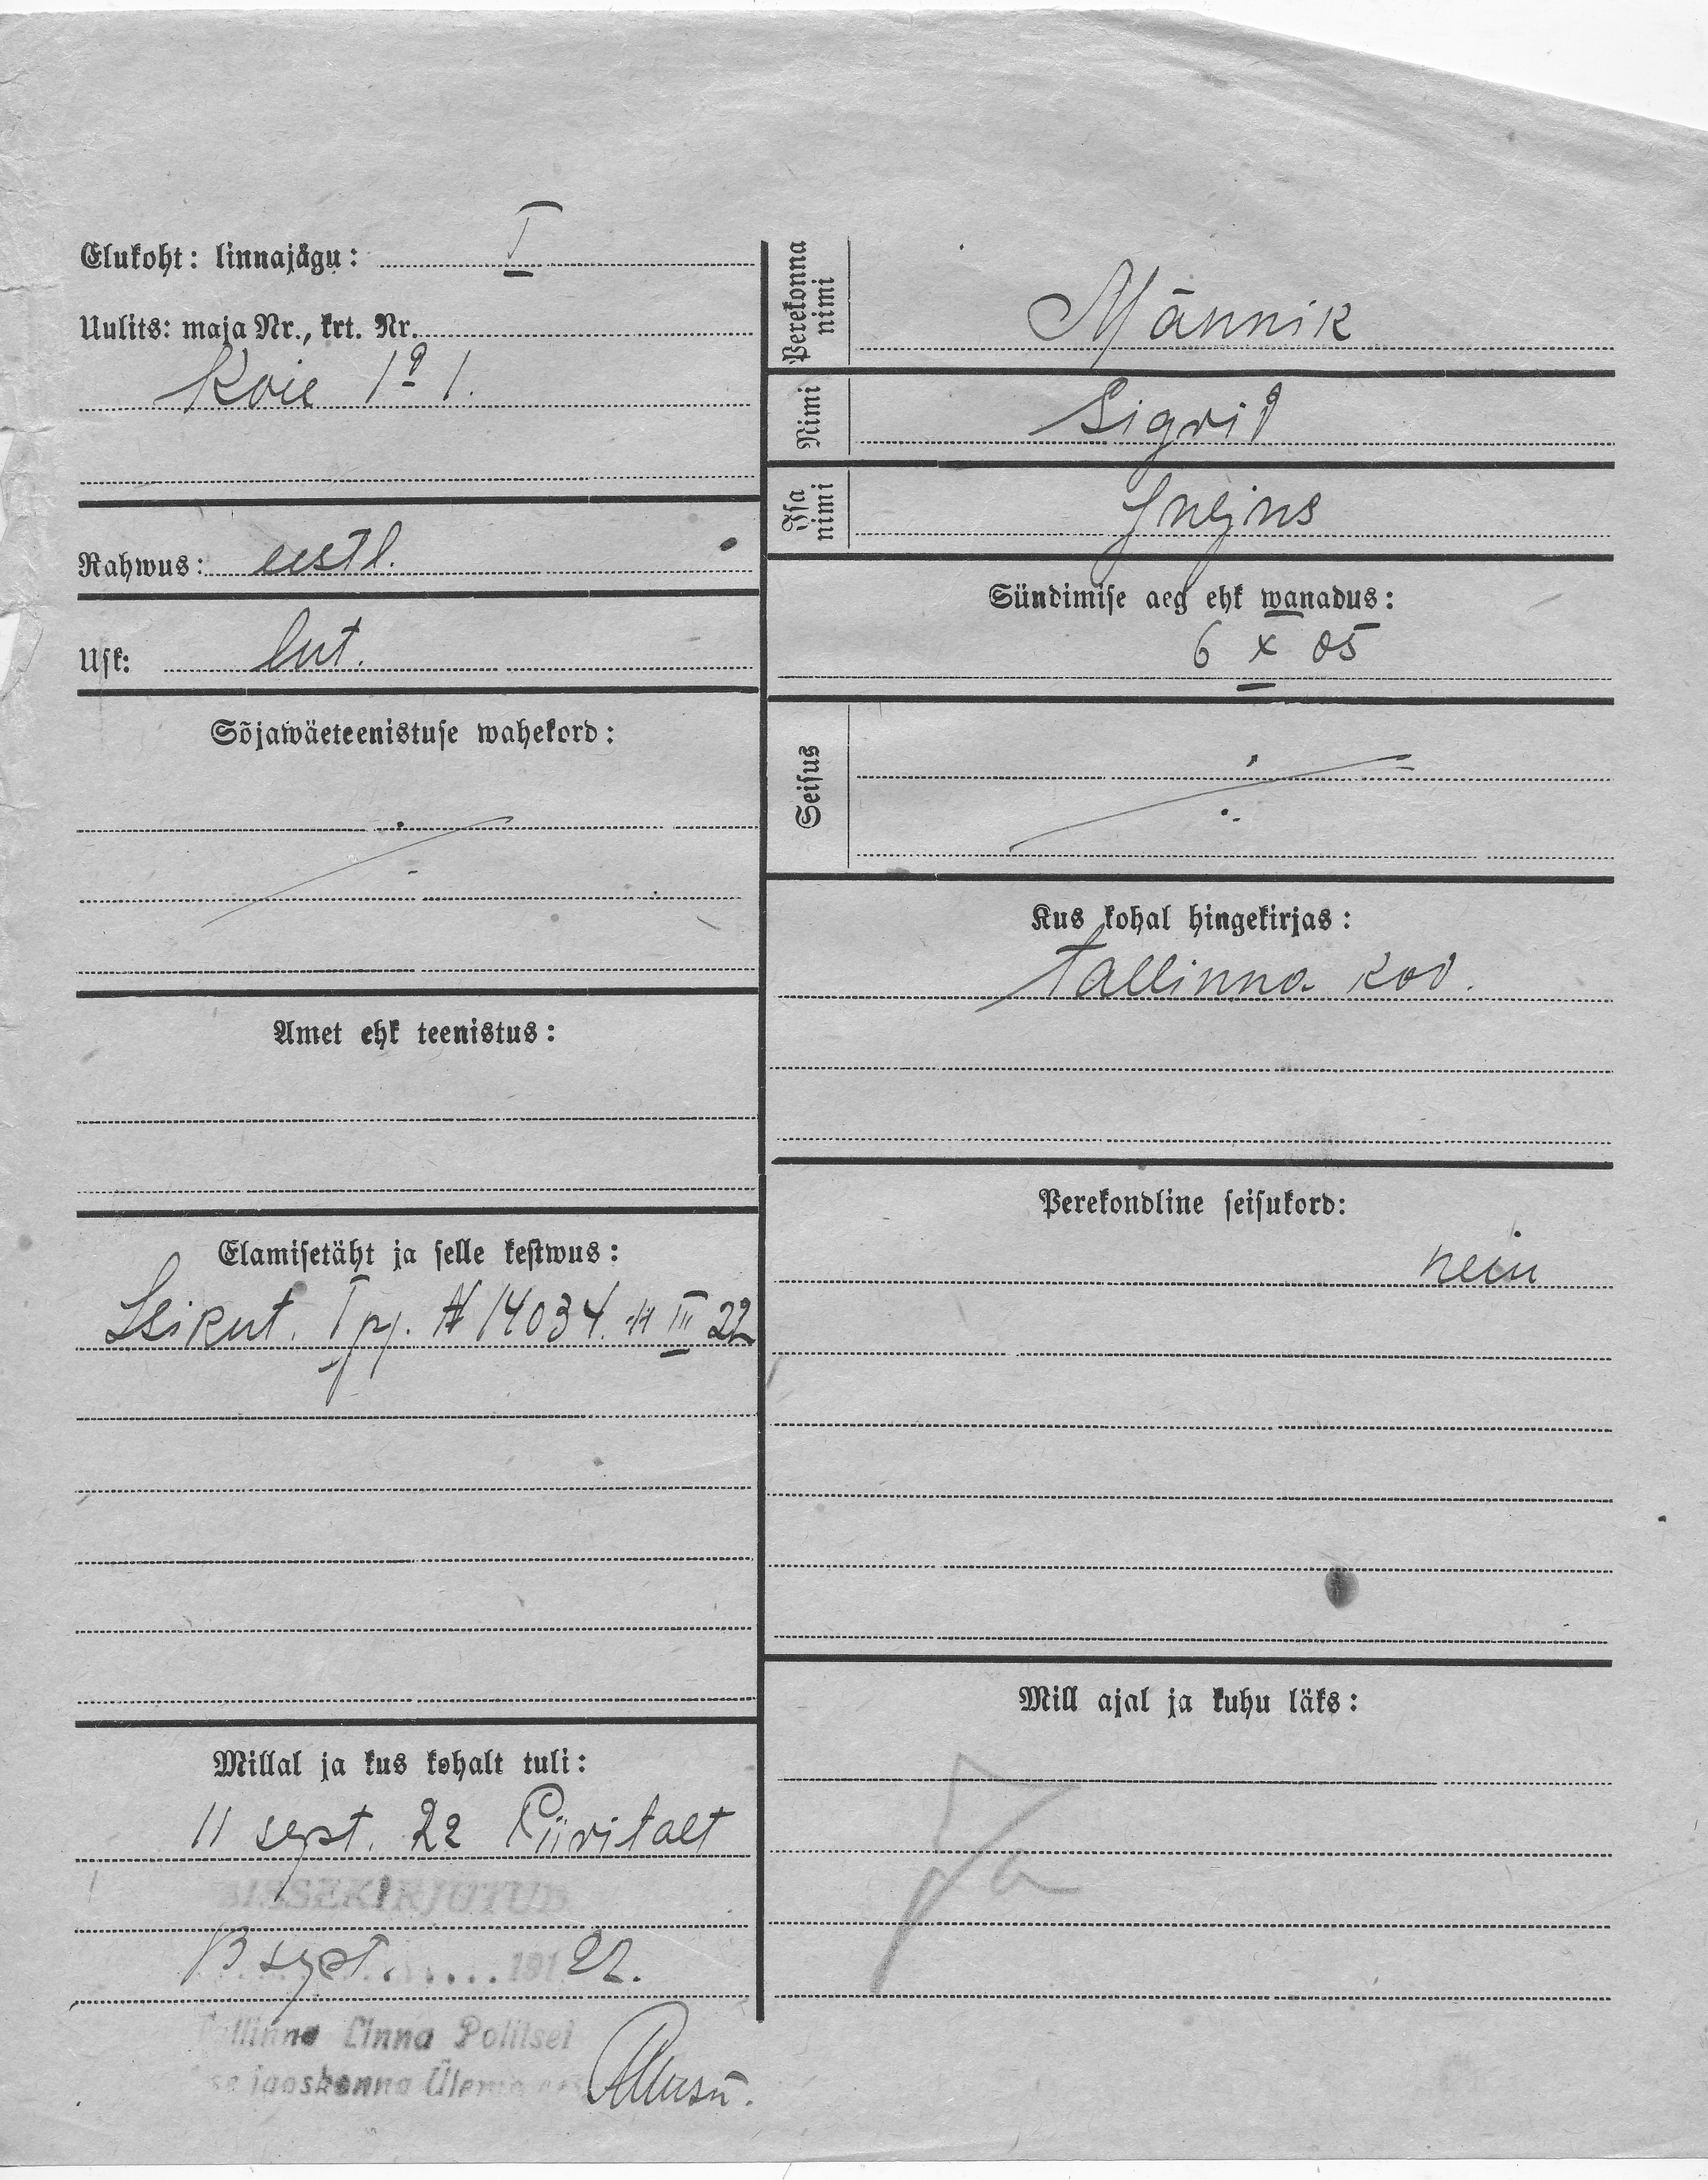 Elukoht: linnajagu: I
Uulits: maja Nr., krt. Nr.
Koie 1ª 1.
Rahwus: eestl.
Usk: lut.
Sõjawäeteenistuse wahekord:
Amet ehk teenistus:
Elamisetäht ja selle kestwus:
Isikut. I pj. N 14034. 11 III 22
Millal ja kus kohalt tuli:
11 sept. 22 Piiritalt
SISSEKIRJUTUD
13 sept. 191 22.
Tallinna Linna Politsei
se jaoskonna Ülem
Perekonna nimi
Männik
Nimi
Sigrid
Isa nimi
Sündimise aeg ehk wanadus:
6 X 05
Seisus
Kus kohal hingekirjas:
Tallinna kod.
Perekondline seisukord:
neiu
Mill ajal ja kuhu läks: